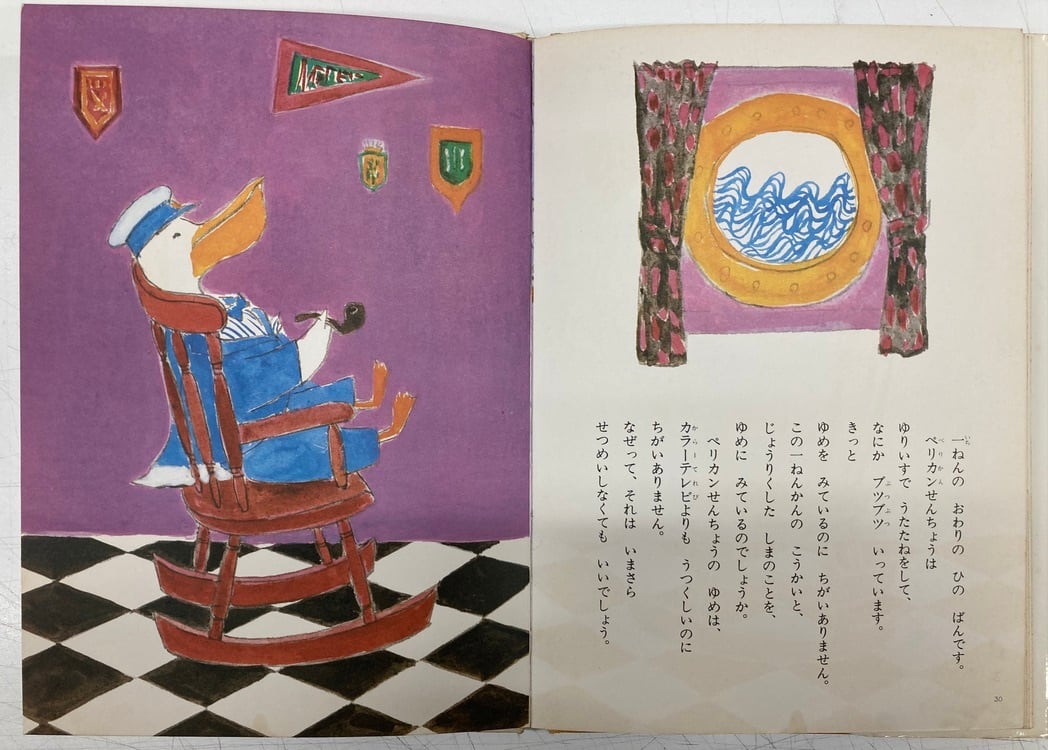 一ねんの　おわりの　ひの　ばんです。
ペリカンせんちょうは
ゆりいすで　うたたねをして、
なにか　ブツブツ　いっています。
きっと
ゆめを　みているのに　ちがいありません。
この一ねんかんの　こうかいと、
じょうりくした　しまのことを、
ゆめに　みているのでしょうか。
ペリカンせんちょうの　ゆめは、
カラーテレビよりも　うつくしいのに
ちがいありません。
なぜって、それは　いまさら
せつめいしなくても　いいでしょう。
30